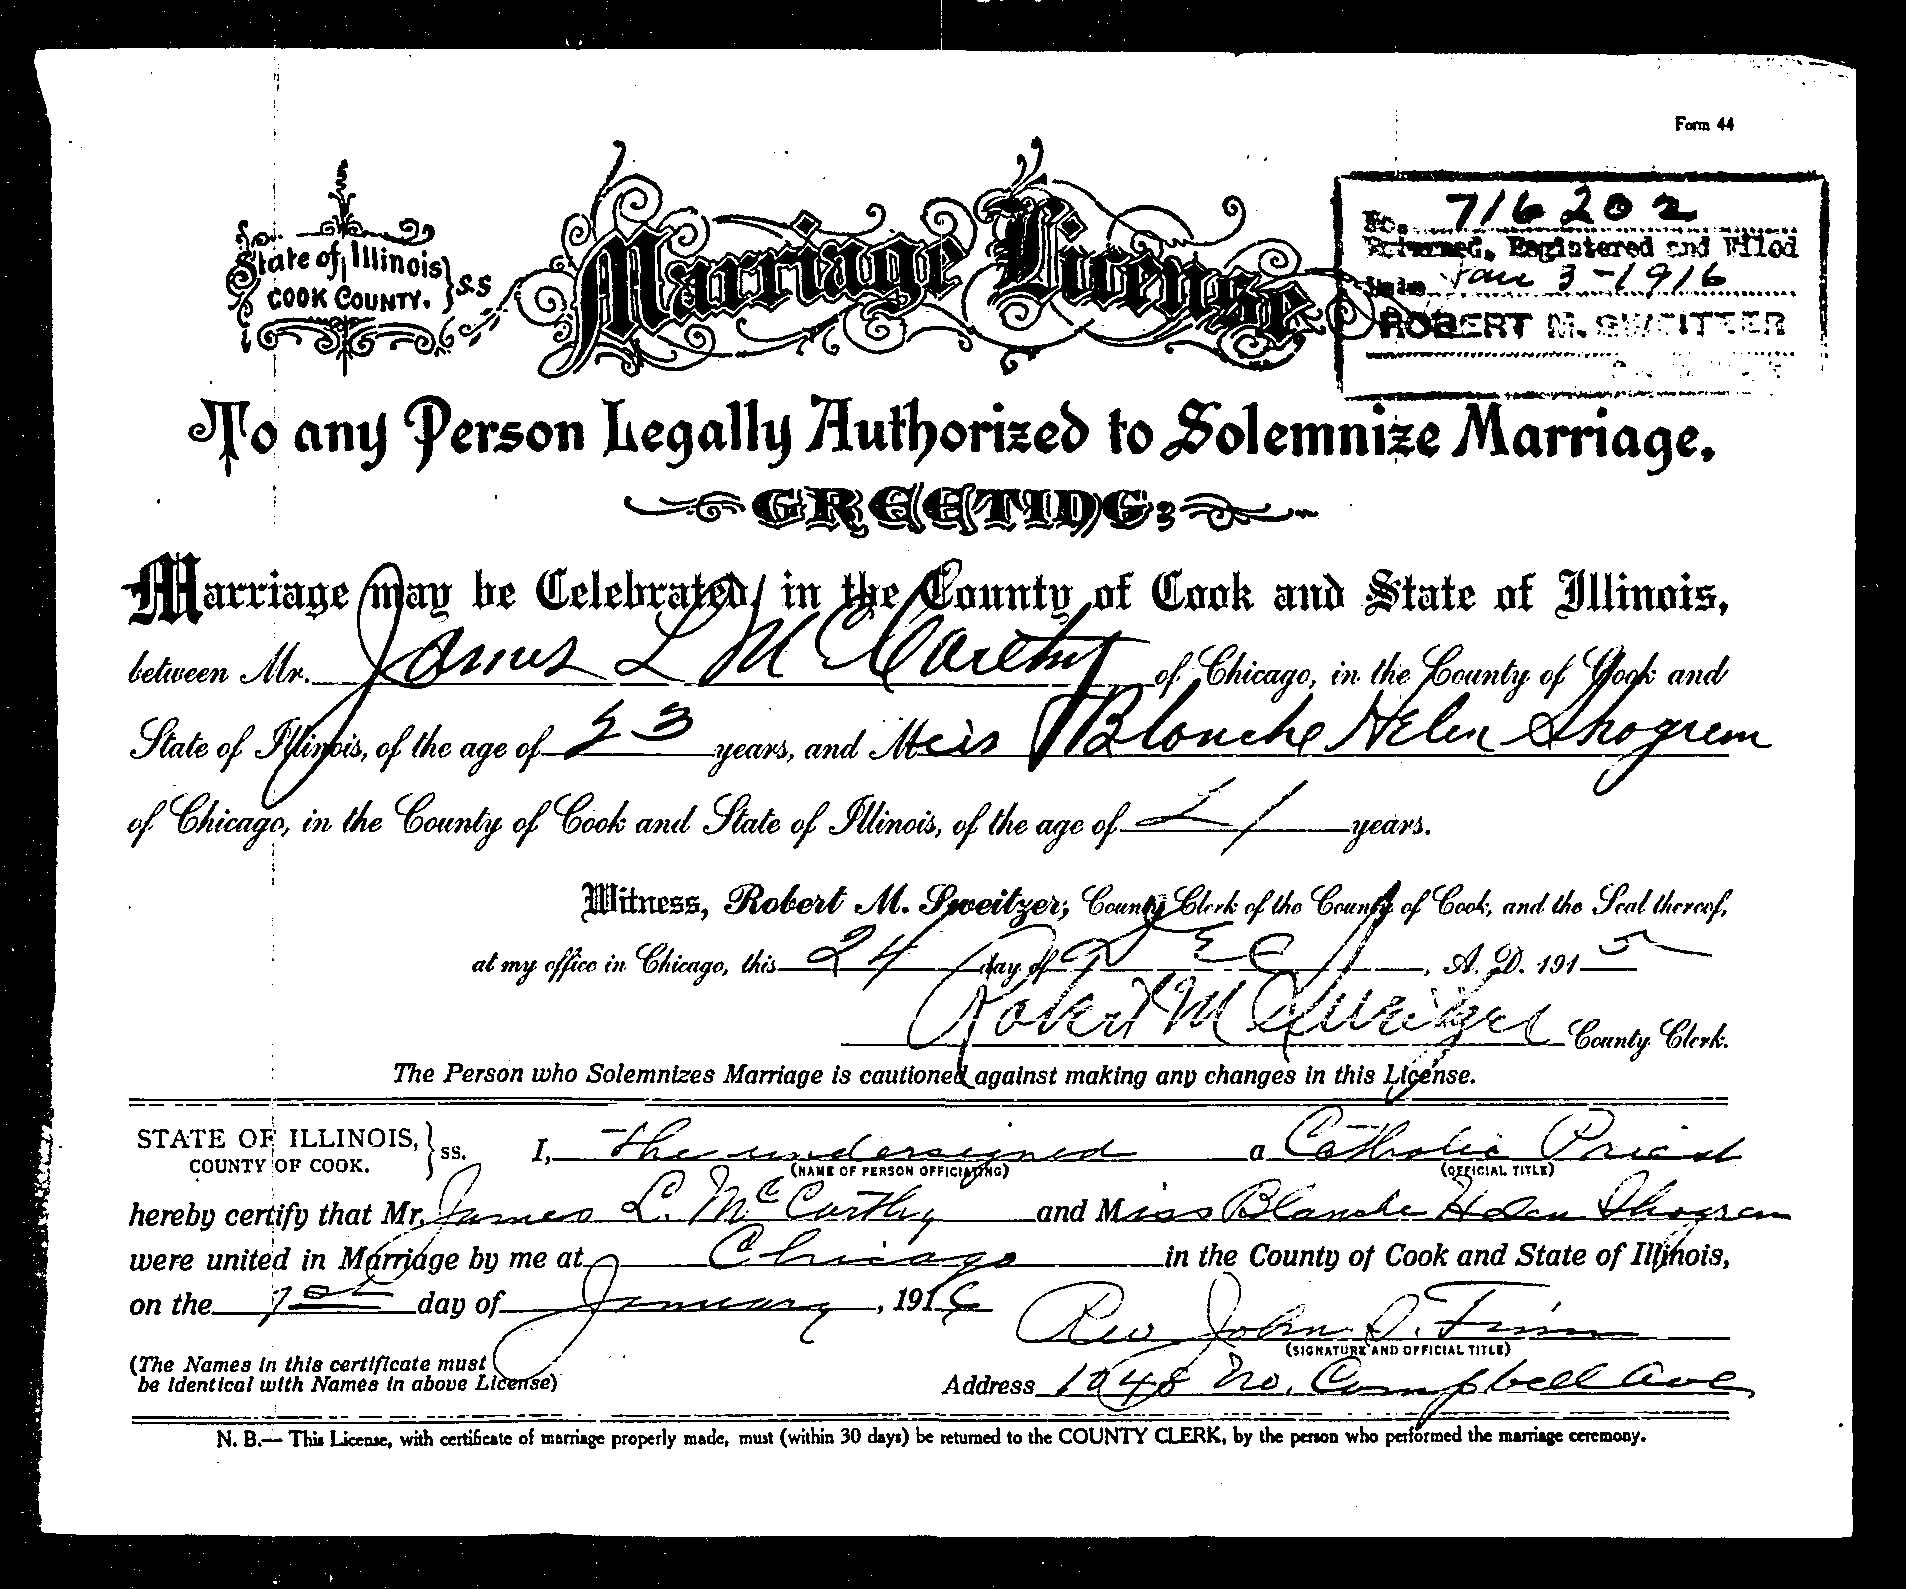 Form 44
State of Illinois } S.S
COOK COUNTY.
Marriage License
No. 716202
Returned, Registered and Filed
Jan 3-1916
ROBERT M. SWEITZER
To any Person Legally Authorized to Solemnize Marriage.
GREETING:
Marriage may be Celebrated, in the County of Cook and State of Illinois,
between Mr. James L McCarthy of Chicago, in the County of Cook and
State of Illinois, of the age of 23 years, and Miss Blanche Helen Shogrem
of Chicago, in the County of Cook and State of Illinois, of the age of 21 years.
Witness, Robert M. Sweitzer, County Clerk of the County of Cook, and the Seal thereof,
at my office in Chicago, this 24 day of DEC, A. D. 1915
Robert M Sweitzer County Clerk.
The Person who Solemnizes Marriage is cautioned against making any changes in this License.
STATE OF ILLINOIS, } ss. I, the undersigned a Catholic Priest
COUNTY OF COOK. (NAME OF PERSON OFFICIATING) (OFFICIAL TITLE)
hereby certify that Mr. James L. McCarthy and Miss Blanche Helen Shogren
were united in Marriage by me at Chicago in the County of Cook and State of Illinois,
on the 1st day of January, 1916 Rev John D. Finn
(SIGNATURE AND OFFICIAL TITLE)
(The Names in this certificate must
be identical with Names in above License) Address 1048 No. Campbell Ave
N. B.— This License, with certificate of marriage properly made, must (within 30 days) be returned to the COUNTY CLERK, by the person who performed the marriage ceremony.